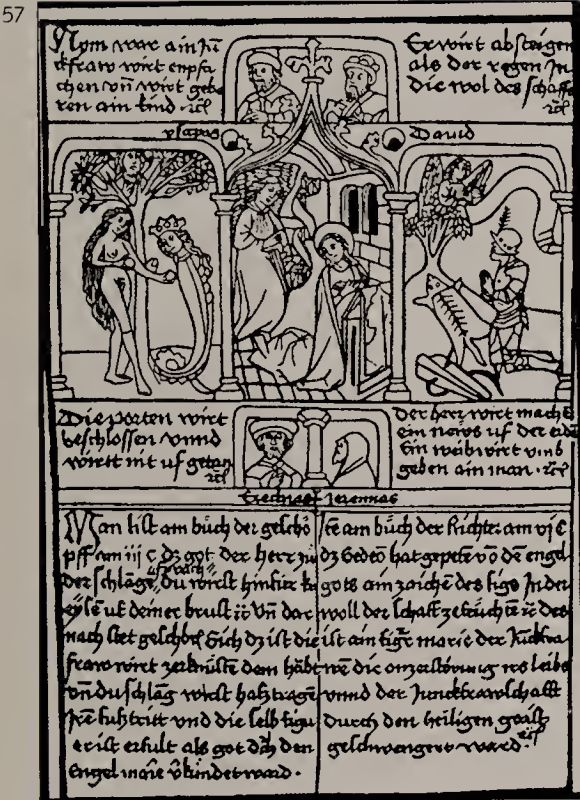 57
Nym war ain Ju
ckfraw wirt enpfa
chen vn̄ wirt gebe
ren ain kind · ꝛcſ
Er wirt absteigen
als der regen In
die wol des schaffs
ꝛcſ
ysayas
David
Die porten wirt
beschlossen vnnd
wirtt nit uf getan
ꝛcſ
Der herr wirt machen
ein news uf der erd
Ein weib wirt vmb
geben ain man · ꝛcſ
Ezechias Jeremias
Man list am bůch der geschö
pff am iij c dz got der herr zu
der schlāge sprach Du wirst hinfür
uf deiner brust ꝛc Vn̄ dar
nach stet geschrɓ Sich dz ist die
fraw wirt zerknüstē dem habt
vn̄ du schlāg wirst haß tragē
Irē fußtritt vnd die selb figu
er ist erfult als got den
Engel marie v̄kindet ward ·
am bůch der Richter am vj C
dz Gedeō hat gepetē vō dē engel
gots ain zaichē des sigs In der
woll der schaff ꝛc des
ist ain figē marie der Juckfra
wē die on zerstörung irs leibs
vnnd der Junckfrawschafft
durch den heiligen gaist
geschwangert ward ·